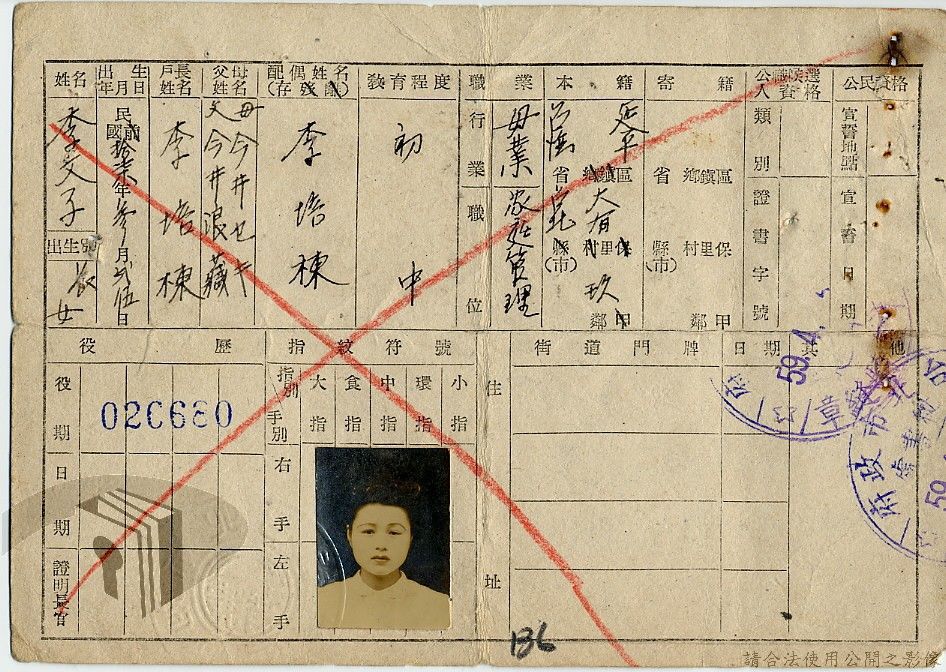 姓名
李文子
出生別
長女
出生年月日
民國前拾柒年參月貳伍日
戶長姓名
李培棟
父母姓名
父今井浪藏
母今井七
配偶姓名
(存歿離)
李培棟
教育程度
初中
職業
行業職位
毋業
家庭管理
本籍
台灣省台北縣(市)
延平鄉鎮區
大有村里保
玖鄰甲
寄籍
省縣(市)
鄉鎮區
村里保
鄰甲
公職候選人資格
類別
證書字號
公民資格
宣誓地點
宣誓日期
役歷
役期
日期
證明長官
020680
指紋符號
指別
手別
大指
食指
中指
環指
小指
右手
左手
住址
街道門牌
日期
其他
59.4.
府政市
59
136
請合法使用公開之影像